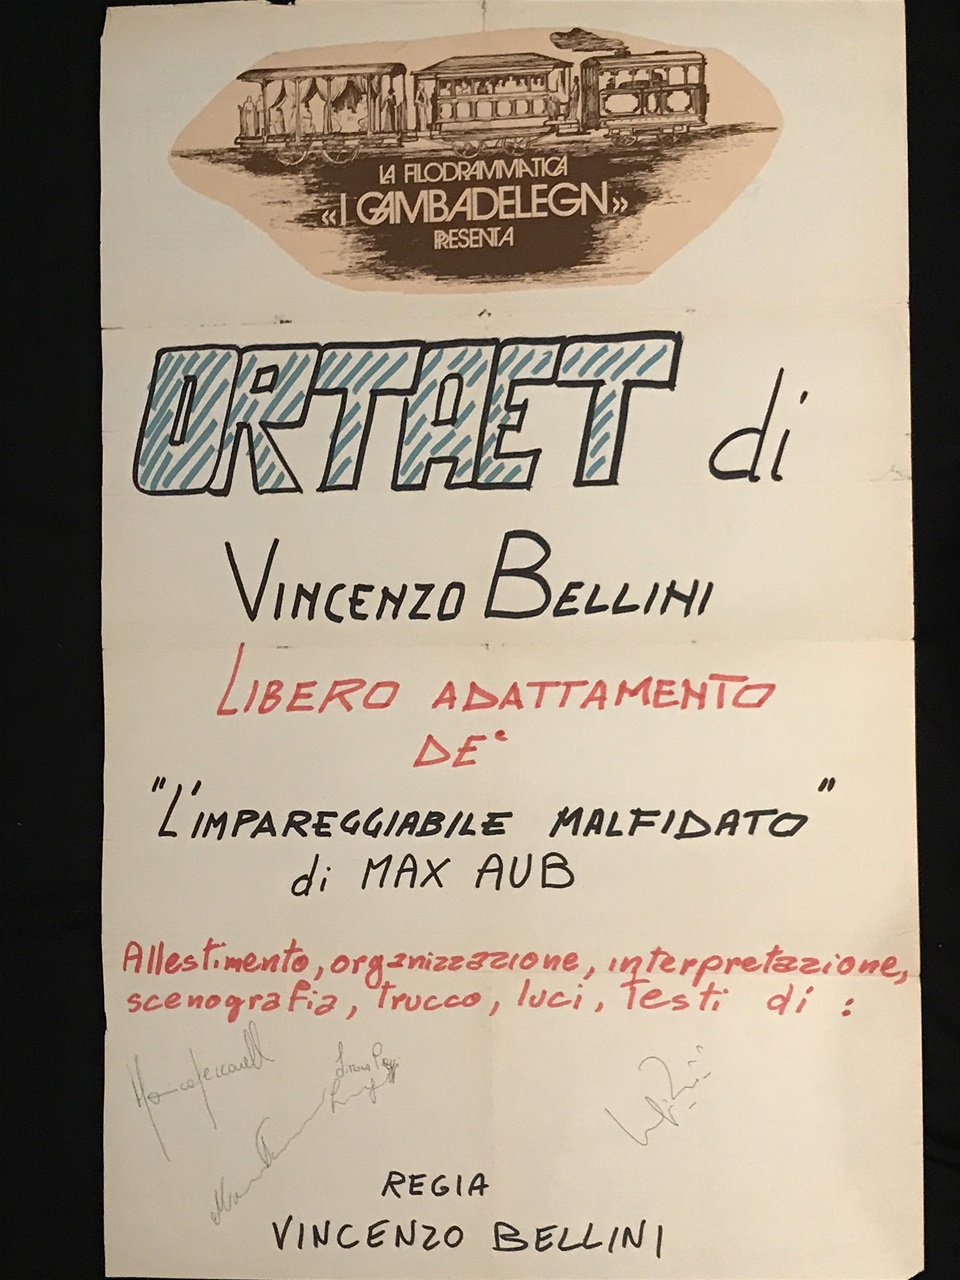 LA FILODRAMMATICA
«I GAMBADELEGN»
PRESENTA
ORTAET di
VINCENZO BELLINI
LIBERO ADATTAMENTO
DE'
"L'IMPAREGGIABILE MALFIDATO"
di MAX AUB
Allestimento, organizzazione, interpretazione,
scenografia, trucco, luci, Testi di:
REGIA
VINCENZO BELLINI